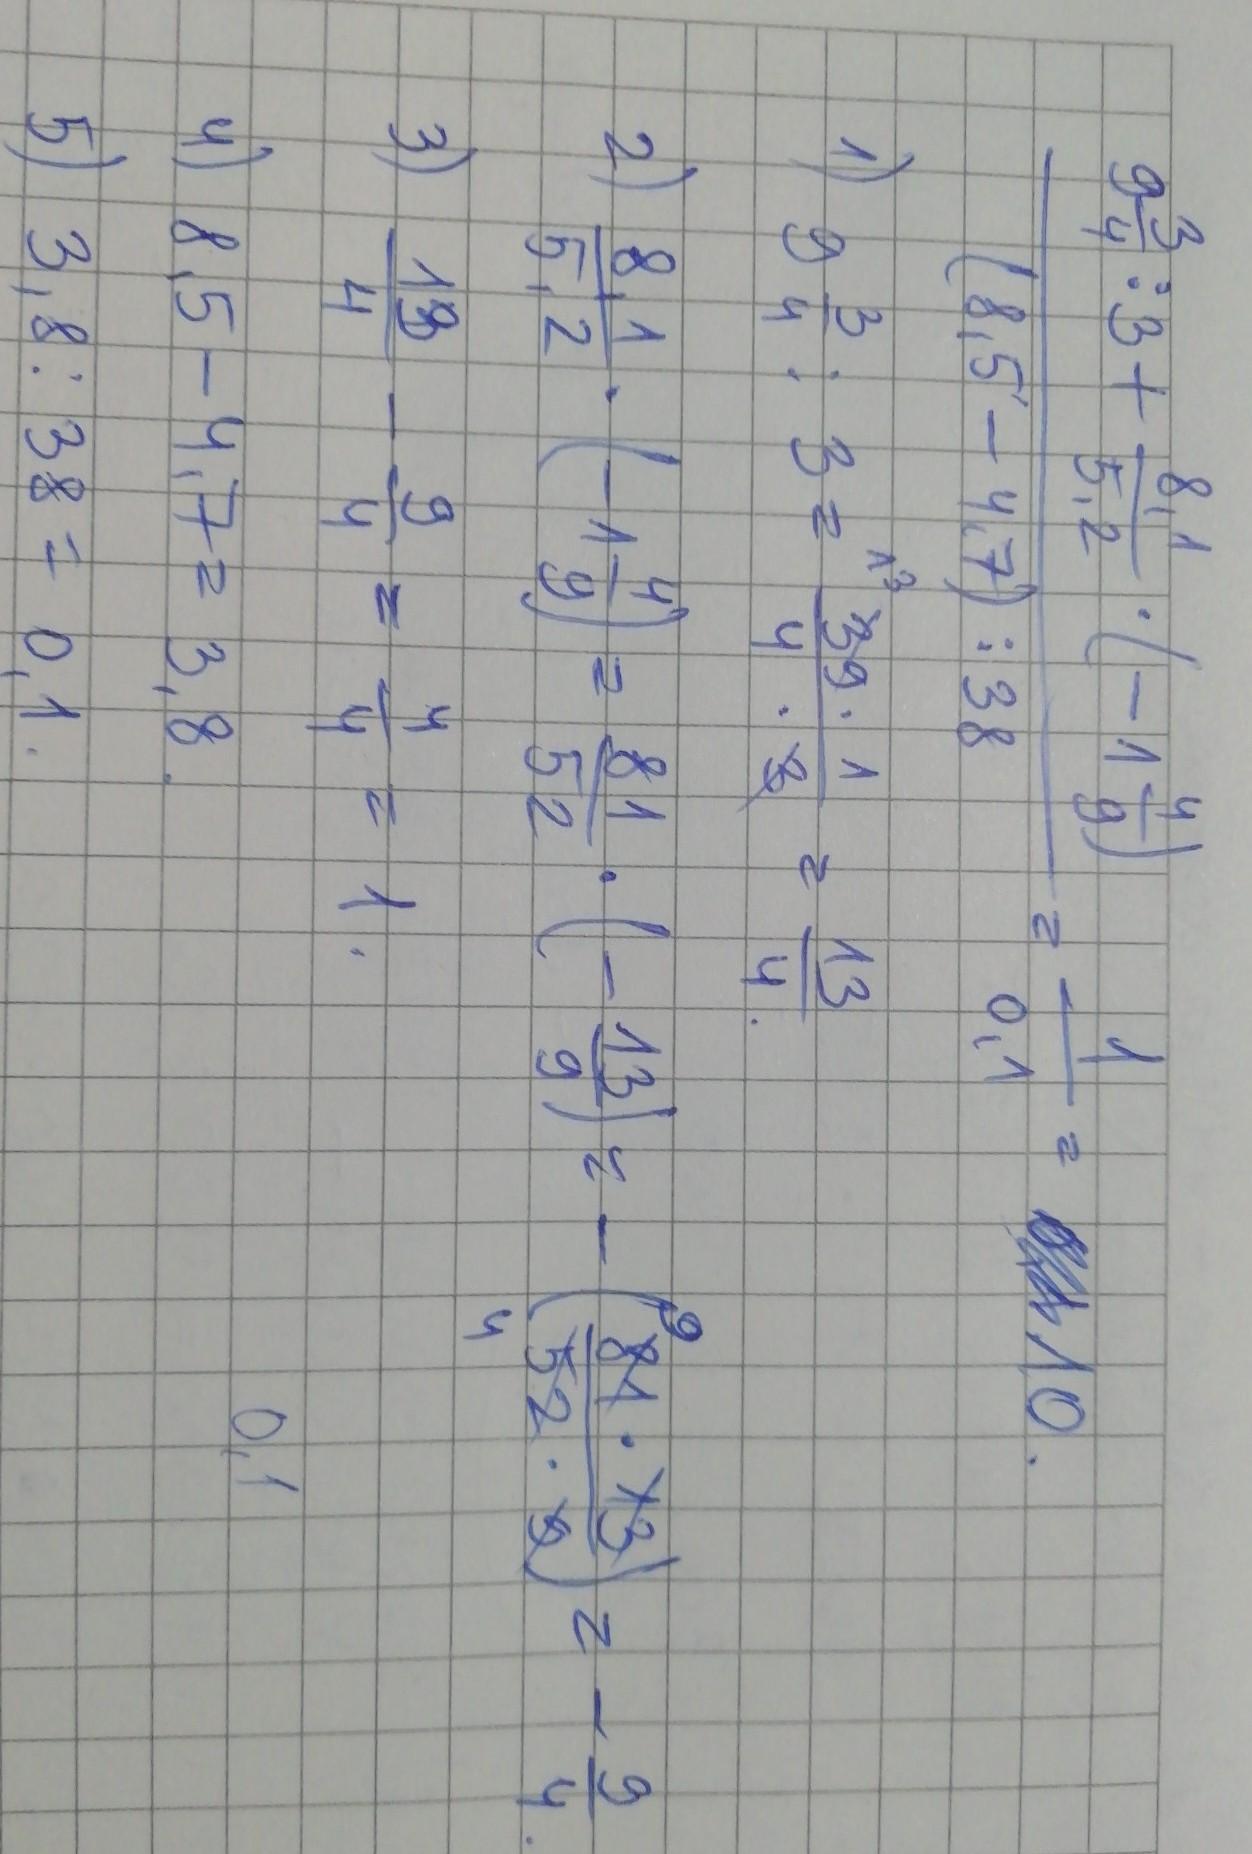 9 3/4 : 3 + 8,1/5,2 · (- 1 4/9)
(8,5 - 4,7) : 38 = 1/0,1 = 10.
1) 9 3/4 : 3 = 39 · 1/4 · 3 = 13/4.
13
2) 8,1/5,2 · (- 1 4/9) = 81/52 · (- 13/9) = - (81 · 13/52 · 9) = - 9/4.
9
4
3) 13/4 - 9/4 = 4/4 = 1.
4) 8,5 - 4,7 = 3,8.
0,1
5) 3,8 : 38 = 0,1.